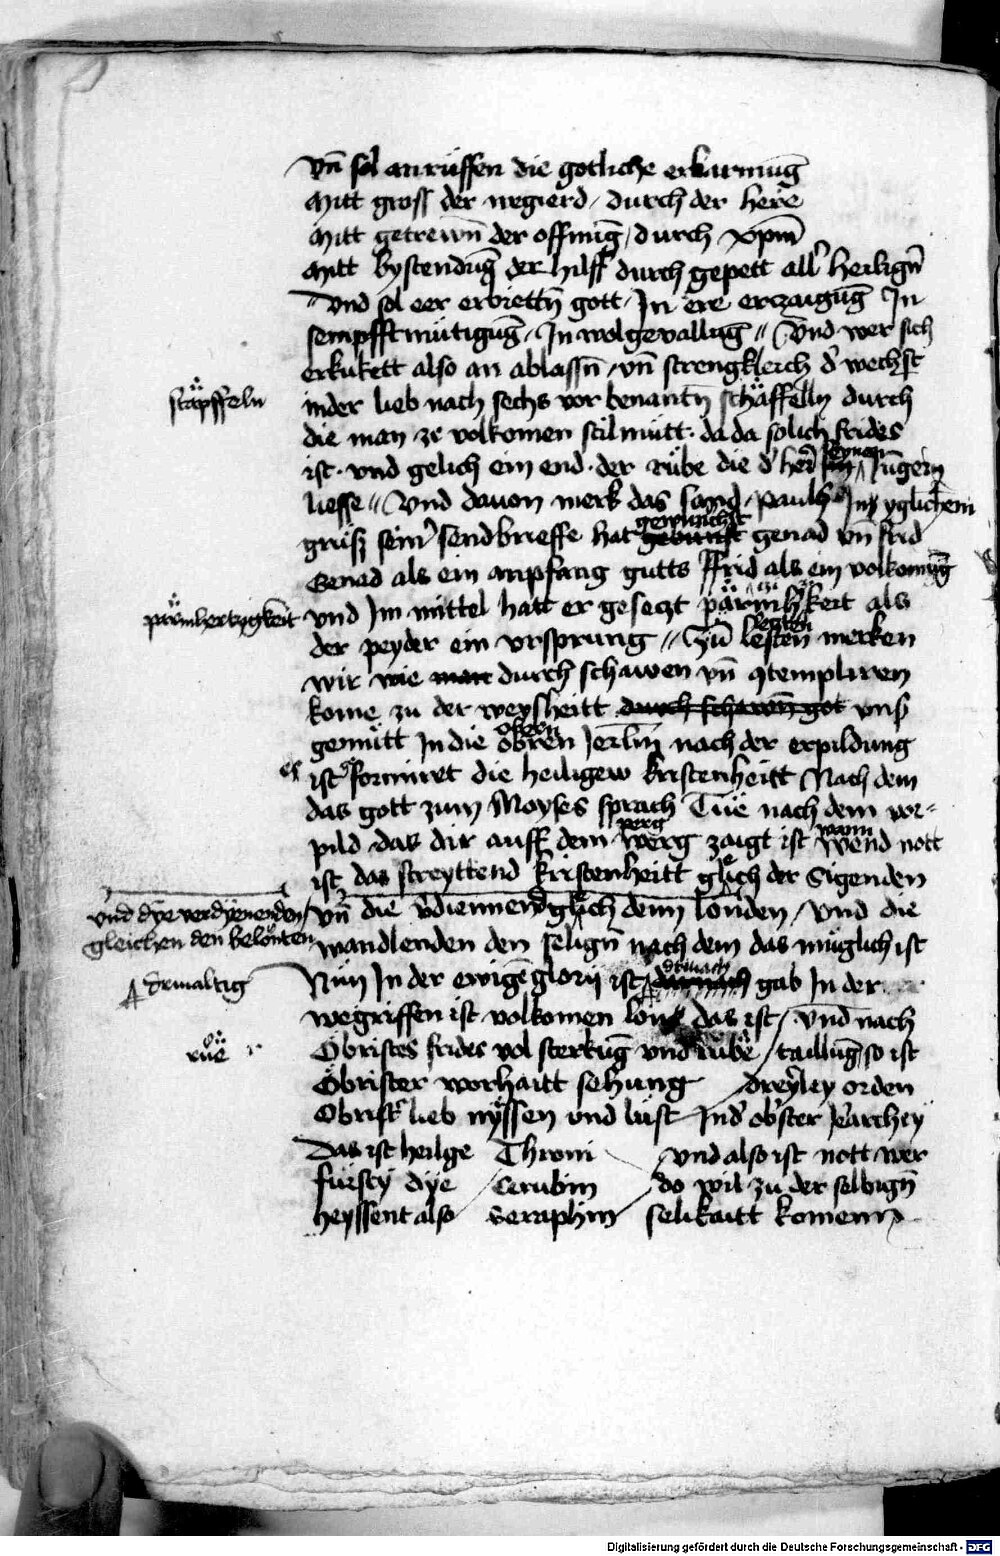 vn̄ sol anrüffen die gotliche erkarmūg
Mitt gross der negierd / durch der here
Mitt getrewn̄ der offnūg / durch xp̄m
Mitt bystendūg der hilff durch gepett all heilign̄
vnd sol eer erbiettn̄ gott / In ere erzaigūg In
sempfftmütigūg / In wolgevallūg // Vnd wer sich
erkukett also an ablassn̄ / vn̄ strengkleich d wechst
stäpffeln
inder lieb nach sechs vor benantn̄ schäffelln durch
die man ze volkomen stilmütt · da da solich frides
ist · vnd gelich ein end · der rübe die d her seynen Jūgern
liesse // Vnd davon merk das sand pauls Im yglichem
grüß seinr sendbrieffe hat gewunscht genad vn̄ frid
Genad als ein anpfang gutts ffrid als ein volkomūg
pärmhertzigkeit
vnd Im mittel hatt er gesetzt pärmhkeit als
der peyder ein vrsprung // Zu letzten lesten merken
wir wie man durch schawen vn̄ 9templiren
kome zu der weysheitt durch schawn̄ got vnß
gemütt In die obern Jerlm̄ nach der erpildung
es
ist formiret die heiligew kristenheitt Nach dem
das gott zum Moyses sprach Tue nach dem vor-
pild das dir auff dem perg werg zaigt ist wann wend nott
ist das streyttend kristenheitt glich der Sigenden
vnd dye verdyenenden
gleichen den belönten
vn̄ die vdiennend glich denn londen / Vnd die
wandlenden den selign̄ nach dem das müglich ist
demaltig
Nün In der ewigē glory ist demach gab In der
wegriffen ist volkomen lon das ist / vnd nach
rüe
Öbristes frides vol sterkūg vnd rübe / taillūg so ist
Öbrister worhaitt sehung dreyley orden
Obrist lieb nyssen vnd lüst Ind obster Jerarchey
Das ist heilge Throni vnd also ist nott wer
fürsty dye Cerubin do wil zu der selbign̄
heyssent also Seraphin selikaitt komenn
Digitalisierung gefördert durch die Deutsche Forschungsgemeinschaft - DFG